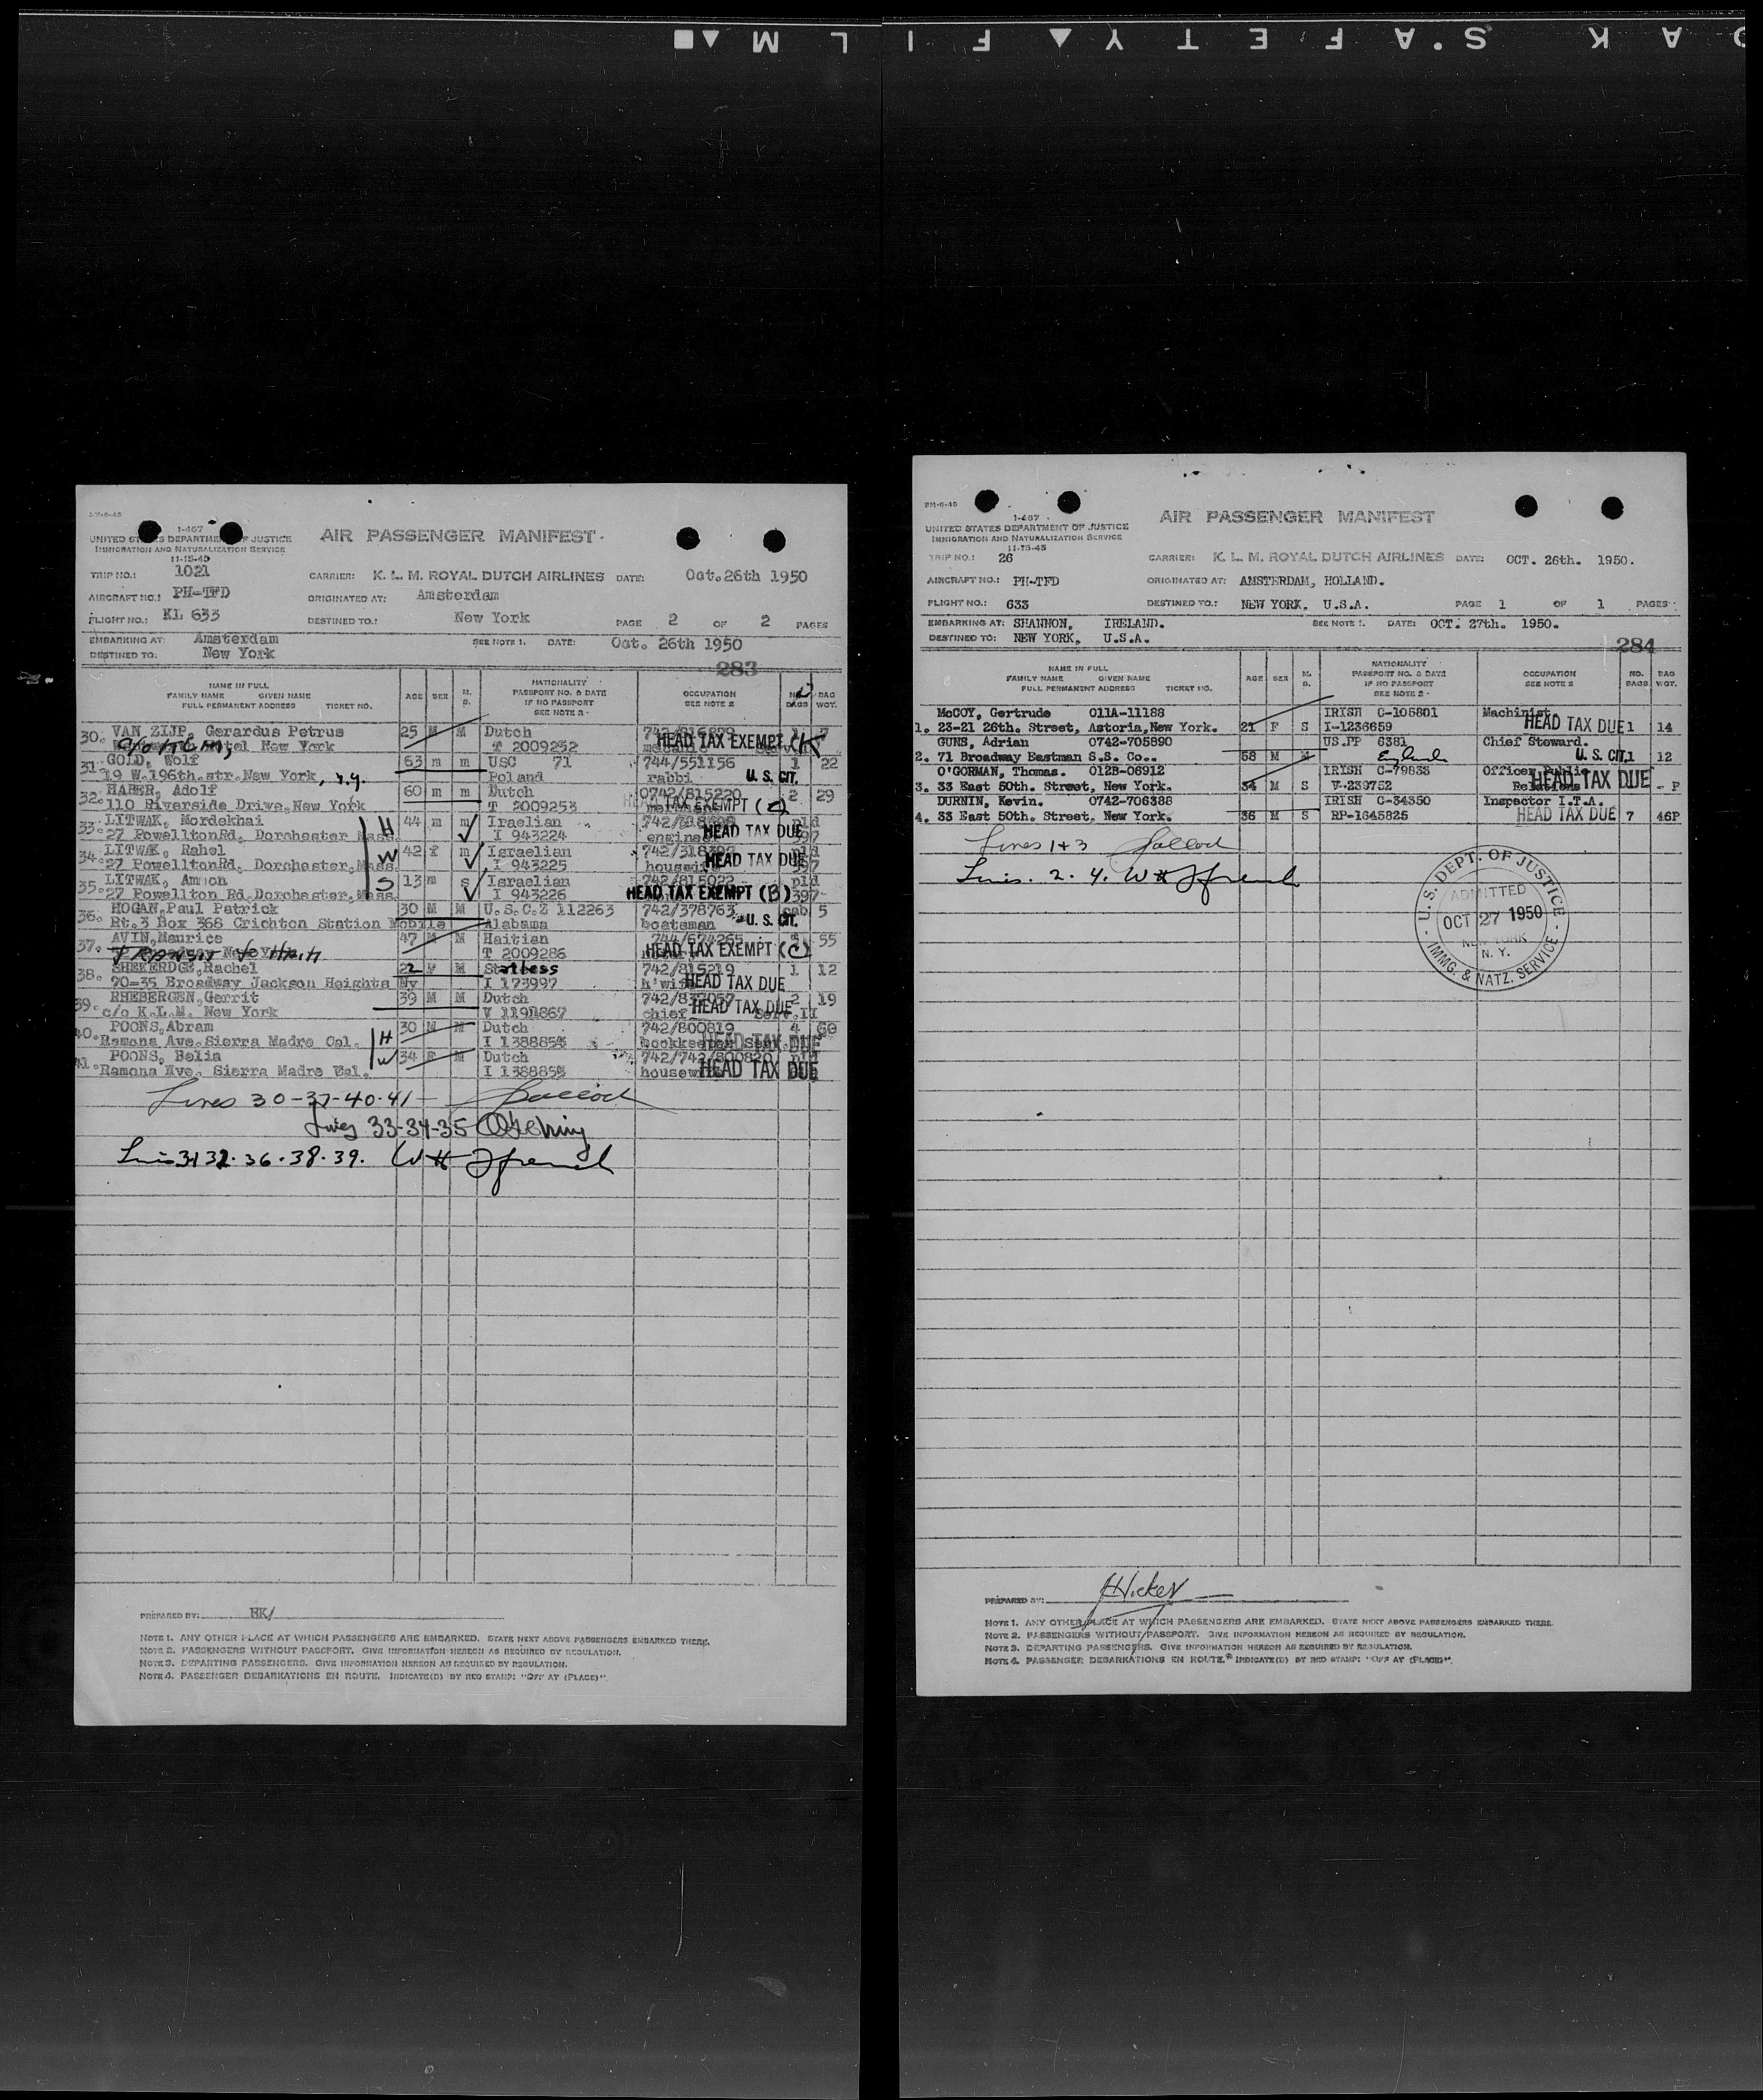 SAFETY FILM
1-467
UNITED STATES DEPARTMENT OF JUSTICE
IMMIGRATION AND NATURALIZATION SERVICE
11-15-45
AIR PASSENGER MANIFEST
TRIP NO.: 1021
CARRIER: K. L. M. ROYAL DUTCH AIRLINES DATE: Oct.26th 1950
AIRCRAFT NO.: PH-TFD ORIGINATED AT: Amsterdam
FLIGHT NO.: KL 633 DESTINED TO.: New York PAGE 2 OF 2 PAGES
EMBARKING AT: Amsterdam SEE NOTE 1. DATE: Oct. 26th 1950
DESTINED TO: New York
283
NAME IN FULL
FAMILY NAME GIVEN NAME
FULL PERMANENT ADDRESS TICKET NO.
AGE SEX M. S.
NATIONALITY
PASSPORT NO. & DATE
IF NO PASSPORT
SEE NOTE 2
OCCUPATION
SEE NOTE 2
BAGS BAG WGT.
30. VAN ZIJP, Gerardus Petrus 25 M M Dutch
c/o KLM, Hotel New York T 2009252 HEAD TAX EXEMPT (K
31. GOLD, Wolf 63 m m USC 71 744/551156 1 22
19 W.196th.str.New York, N.Y. Poland rabbi U. S. CIT.
32. HABER, Adolf 60 m m Dutch 0742/815220 2 29
110 Riverside Drive,New York T 2009253 HEAD TAX EXEMPT (C)
33. LITWAK, Mordekhai 44 m m Iraelian
27 PowelltonRd. Dorchester Mass. H I 943224 engineer HEAD TAX DUE
34. LITWAK, Rahel 42 f m Israelian
27 PowelltonRd. Dorchester,Mass. W I 943225 housewife HEAD TAX DUE
35. LITWAK, Amnon 13 m s Israelian 742/815022 pld
27 Powellton Rd.Dorchester,Mass. S I 943226 HEAD TAX EXEMPT (B) 397
36. HOGAN,Paul Patrick 30 M M U.S.C.Z 112263 742/378763 cab 5
Rt.3 Box 368 Crichton Station Mobile Alabama boatsman U. S. CIT.
37. AVIN,Maurice 47 M M Haitian 744/674265 55
TRANSIT to Haiti T 2009286 HEAD TAX EXEMPT (C)
38. SHEKERDGE,Rachel 22 F M Stateless 742/815219 1 12
70-35 Broadway Jackson Heights Ny I 173997 h'wife HEAD TAX DUE
39. RHEBERGEN,Gerrit 39 M M Dutch 742/837057 2 19
c/o K.L.M. New York V 1190867 chief HEAD TAX DUE
40. POONS,Abram 30 M M Dutch 742/800819 4 60
Ramona Ave.Sierra Madre Cal. H I 138885 bookkeeper HEAD TAX DUE
41. POONS, Belia 34 F M Dutch 742/742/800820 pld
Ramona Ave. Sierra Madre Cal. W I 138885 housewife HEAD TAX DUE
Lines 30-37-40-41
Lines 33-34-35
Lines 31 32. 36. 38. 39.
PREPARED BY: HK/
NOTE 1. ANY OTHER PLACE AT WHICH PASSENGERS ARE EMBARKED. STATE NEXT ABOVE PASSENGERS EMBARKED THERE.
NOTE 2. PASSENGERS WITHOUT PASSPORT. GIVE INFORMATION HEREON AS REQUIRED BY REGULATION.
NOTE 3. DEPARTING PASSENGERS. GIVE INFORMATION HEREON AS REQUIRED BY REGULATION.
NOTE 4. PASSENGER DEBARKATIONS EN ROUTE. INDICATE(D) BY RED STAMP: "OFF AT (PLACE)".
1-467
UNITED STATES DEPARTMENT OF JUSTICE
IMMIGRATION AND NATURALIZATION SERVICE
11-15-45
AIR PASSENGER MANIFEST
TRIP NO.: 26 CARRIER: K. L. M. ROYAL DUTCH AIRLINES DATE: OCT. 26th. 1950.
AIRCRAFT NO.: PH-TFD ORIGINATED AT: AMSTERDAM, HOLLAND.
FLIGHT NO.: 633 DESTINED TO.: NEW YORK. U.S.A. PAGE 1 OF 1 PAGES
EMBARKING AT: SHANNON, IRELAND. SEE NOTE 1. DATE: OCT. 27th. 1950.
DESTINED TO: NEW YORK. U.S.A.
284
NAME IN FULL
FAMILY NAME GIVEN NAME
FULL PERMANENT ADDRESS TICKET NO.
AGE SEX M. S.
NATIONALITY
PASSPORT NO. & DATE
IF NO PASSPORT
SEE NOTE 2
OCCUPATION
SEE NOTE 2
NO. BAGS BAG WGT.
McCOY, Gertrude 011A-11188 IRISH C-105801 Machinist
1. 23-21 26th. Street, Astoria,New York. 21 F S I-1236659 HEAD TAX DUE 1 14
GUNS, Adrian 0742-705890 US.PP 6381 Chief Steward.
2. 71 Broadway Eastman S.S. Co.. 58 M M England U. S. CIT. 1 12
O'GORMAN, Thomas. 012B-06912 IRISH C-79835 Officer Public
3. 33 East 50th. Street, New York. 34 M S V-239752 Relations HEAD TAX DUE - P
DURNIN, Kevin. 0742-706388 IRISH C-34350 Inspector I.T.A.
4. 33 East 50th. Street, New York. 36 M S RP-1645825 HEAD TAX DUE 7 46P
Lines 1+3
Lines. 2. 4.
U.S. DEPT. OF JUSTICE
ADMITTED
OCT 27 1950
NEW YORK
N. Y.
IMMG. & NATZ. SERVICE
PREPARED BY:
NOTE 1. ANY OTHER PLACE AT WHICH PASSENGERS ARE EMBARKED. STATE NEXT ABOVE PASSENGERS EMBARKED THERE.
NOTE 2. PASSENGERS WITHOUT PASSPORT. GIVE INFORMATION HEREON AS REQUIRED BY REGULATION.
NOTE 3. DEPARTING PASSENGERS. GIVE INFORMATION HEREON AS REQUIRED BY REGULATION.
NOTE 4. PASSENGER DEBARKATIONS EN ROUTE. INDICATE(D) BY RED STAMP: "OFF AT (PLACE)".